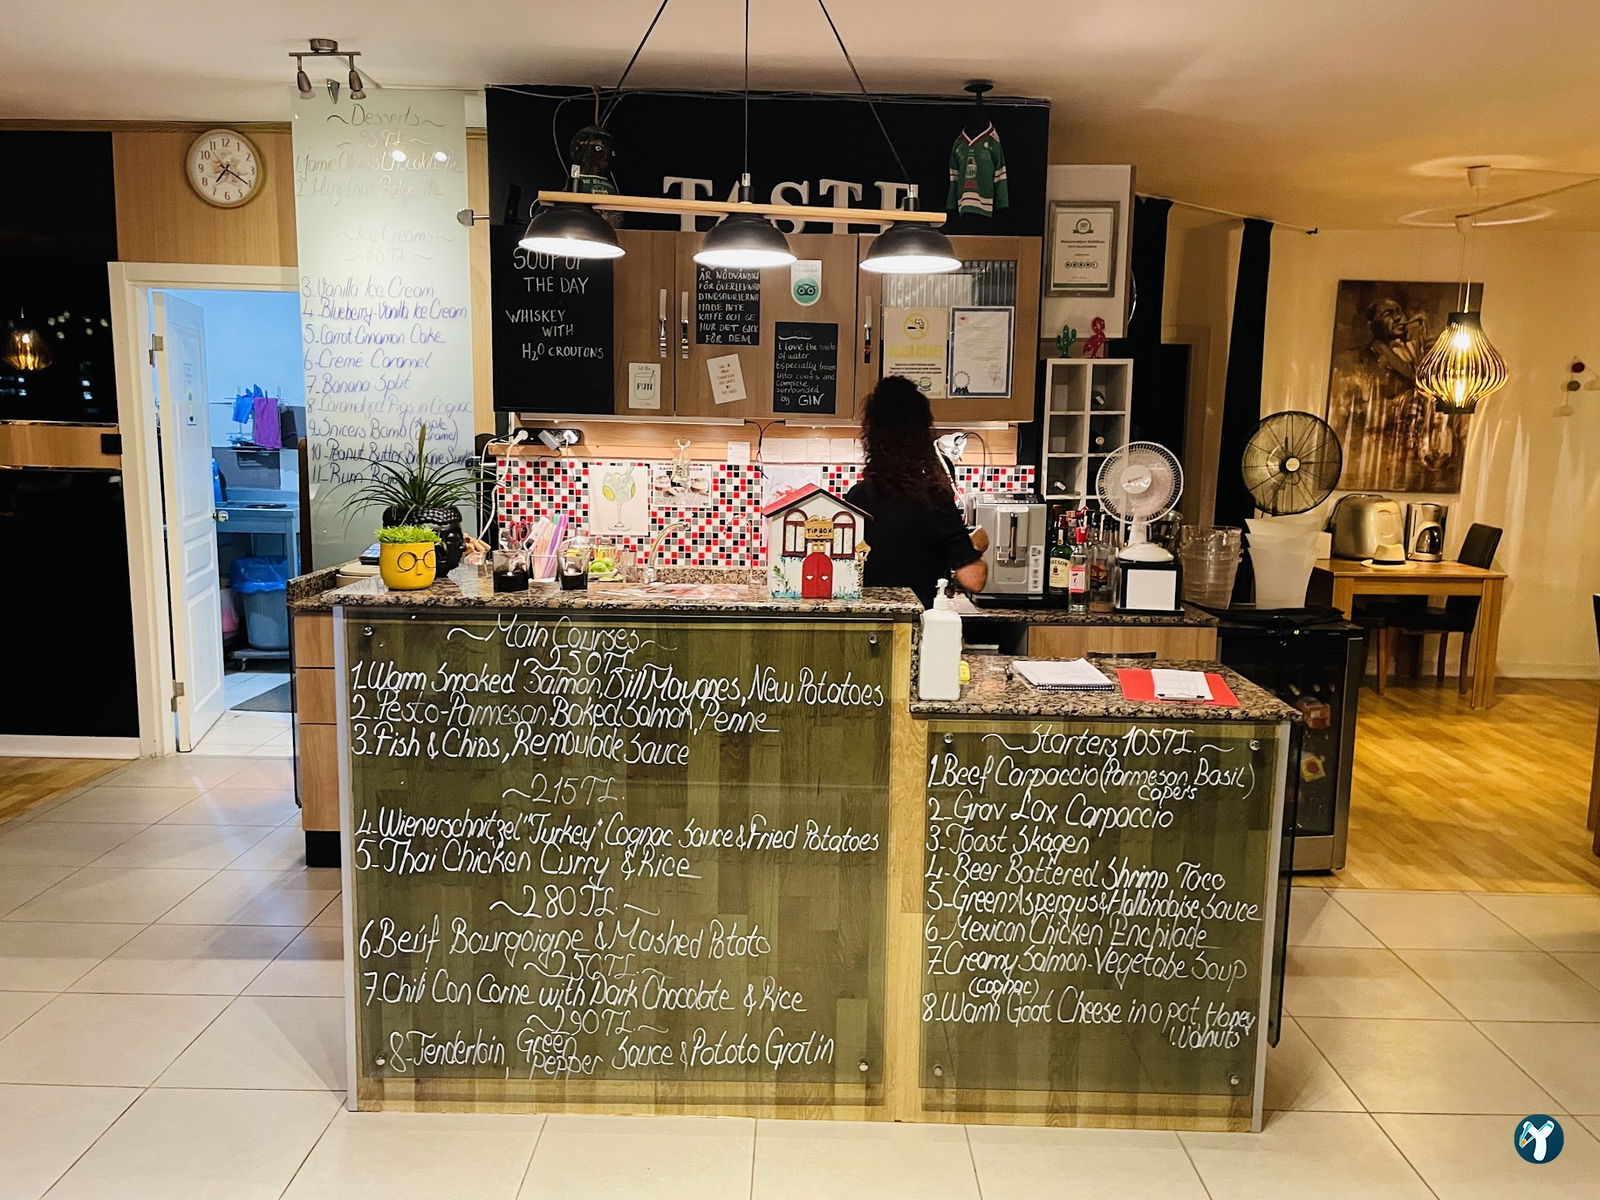 ~Desserts~
Ice Creams
85TL
3-Vanilla Ice Cream
4-Blueberry-Vanilla Ice Cream
5-Carrot Cinnamon Cake
6-Creme Caramel
7-Banana Split
8-Caramelized Figs in Cognac
9-Snicers Bomb (Apple
Caramel)
10-Peanut Butter
11-Rum
TASTE
SOUP OF
THE DAY
WHISKEY
WITH
H2O CROUTONS
ÄR NÖDVÄNDIGT
FÖR ÖVERLEVNAD
DINOSAURIERNA
HADE INTE
KAFFE OCH SE
HUR DET GICK
FÖR DEM
FUN
I love the taste
of water
especially frozen
into cubes and
complete
surrounded
by GIN
TIP BOX
~Main Courses~
~250TL
1.Warm Smoked Salmon, Dill Mayones, New Potatoes
2.Pesto-Parmesan Baked Salmon, Penne
3.Fish & Chips, Remoulade Sauce
~215TL.
4-Wienerschnitzel "Turkey" Cognac Sauce & Fried Potatoes
5-Thai Chicken Curry & Rice
~280TL.~
6.Beuf Bourgoigne & Mashed Potato
~250TL.~
7.Chili Con Carne with Dark Chocolate & Rice
~290TL.~
8-Tenderloin, Green Pepper Sauce & Potato Gratin
~Starters 105TL.~
1.Beef Carpaccio (Parmesan, Basil)
capers
2-Grav Lax Carpaccio
3-Toast Skagen
4-Beer Battered Shrimp Taco
5-Green Aspergus & Hallandaise Sauce
6-Mexican Chicken Enchilade
7-Creamy Salmon-Vegetabe Soup
(cognac)
8-Warm Goat Cheese in a pot, Honey
Walnuts